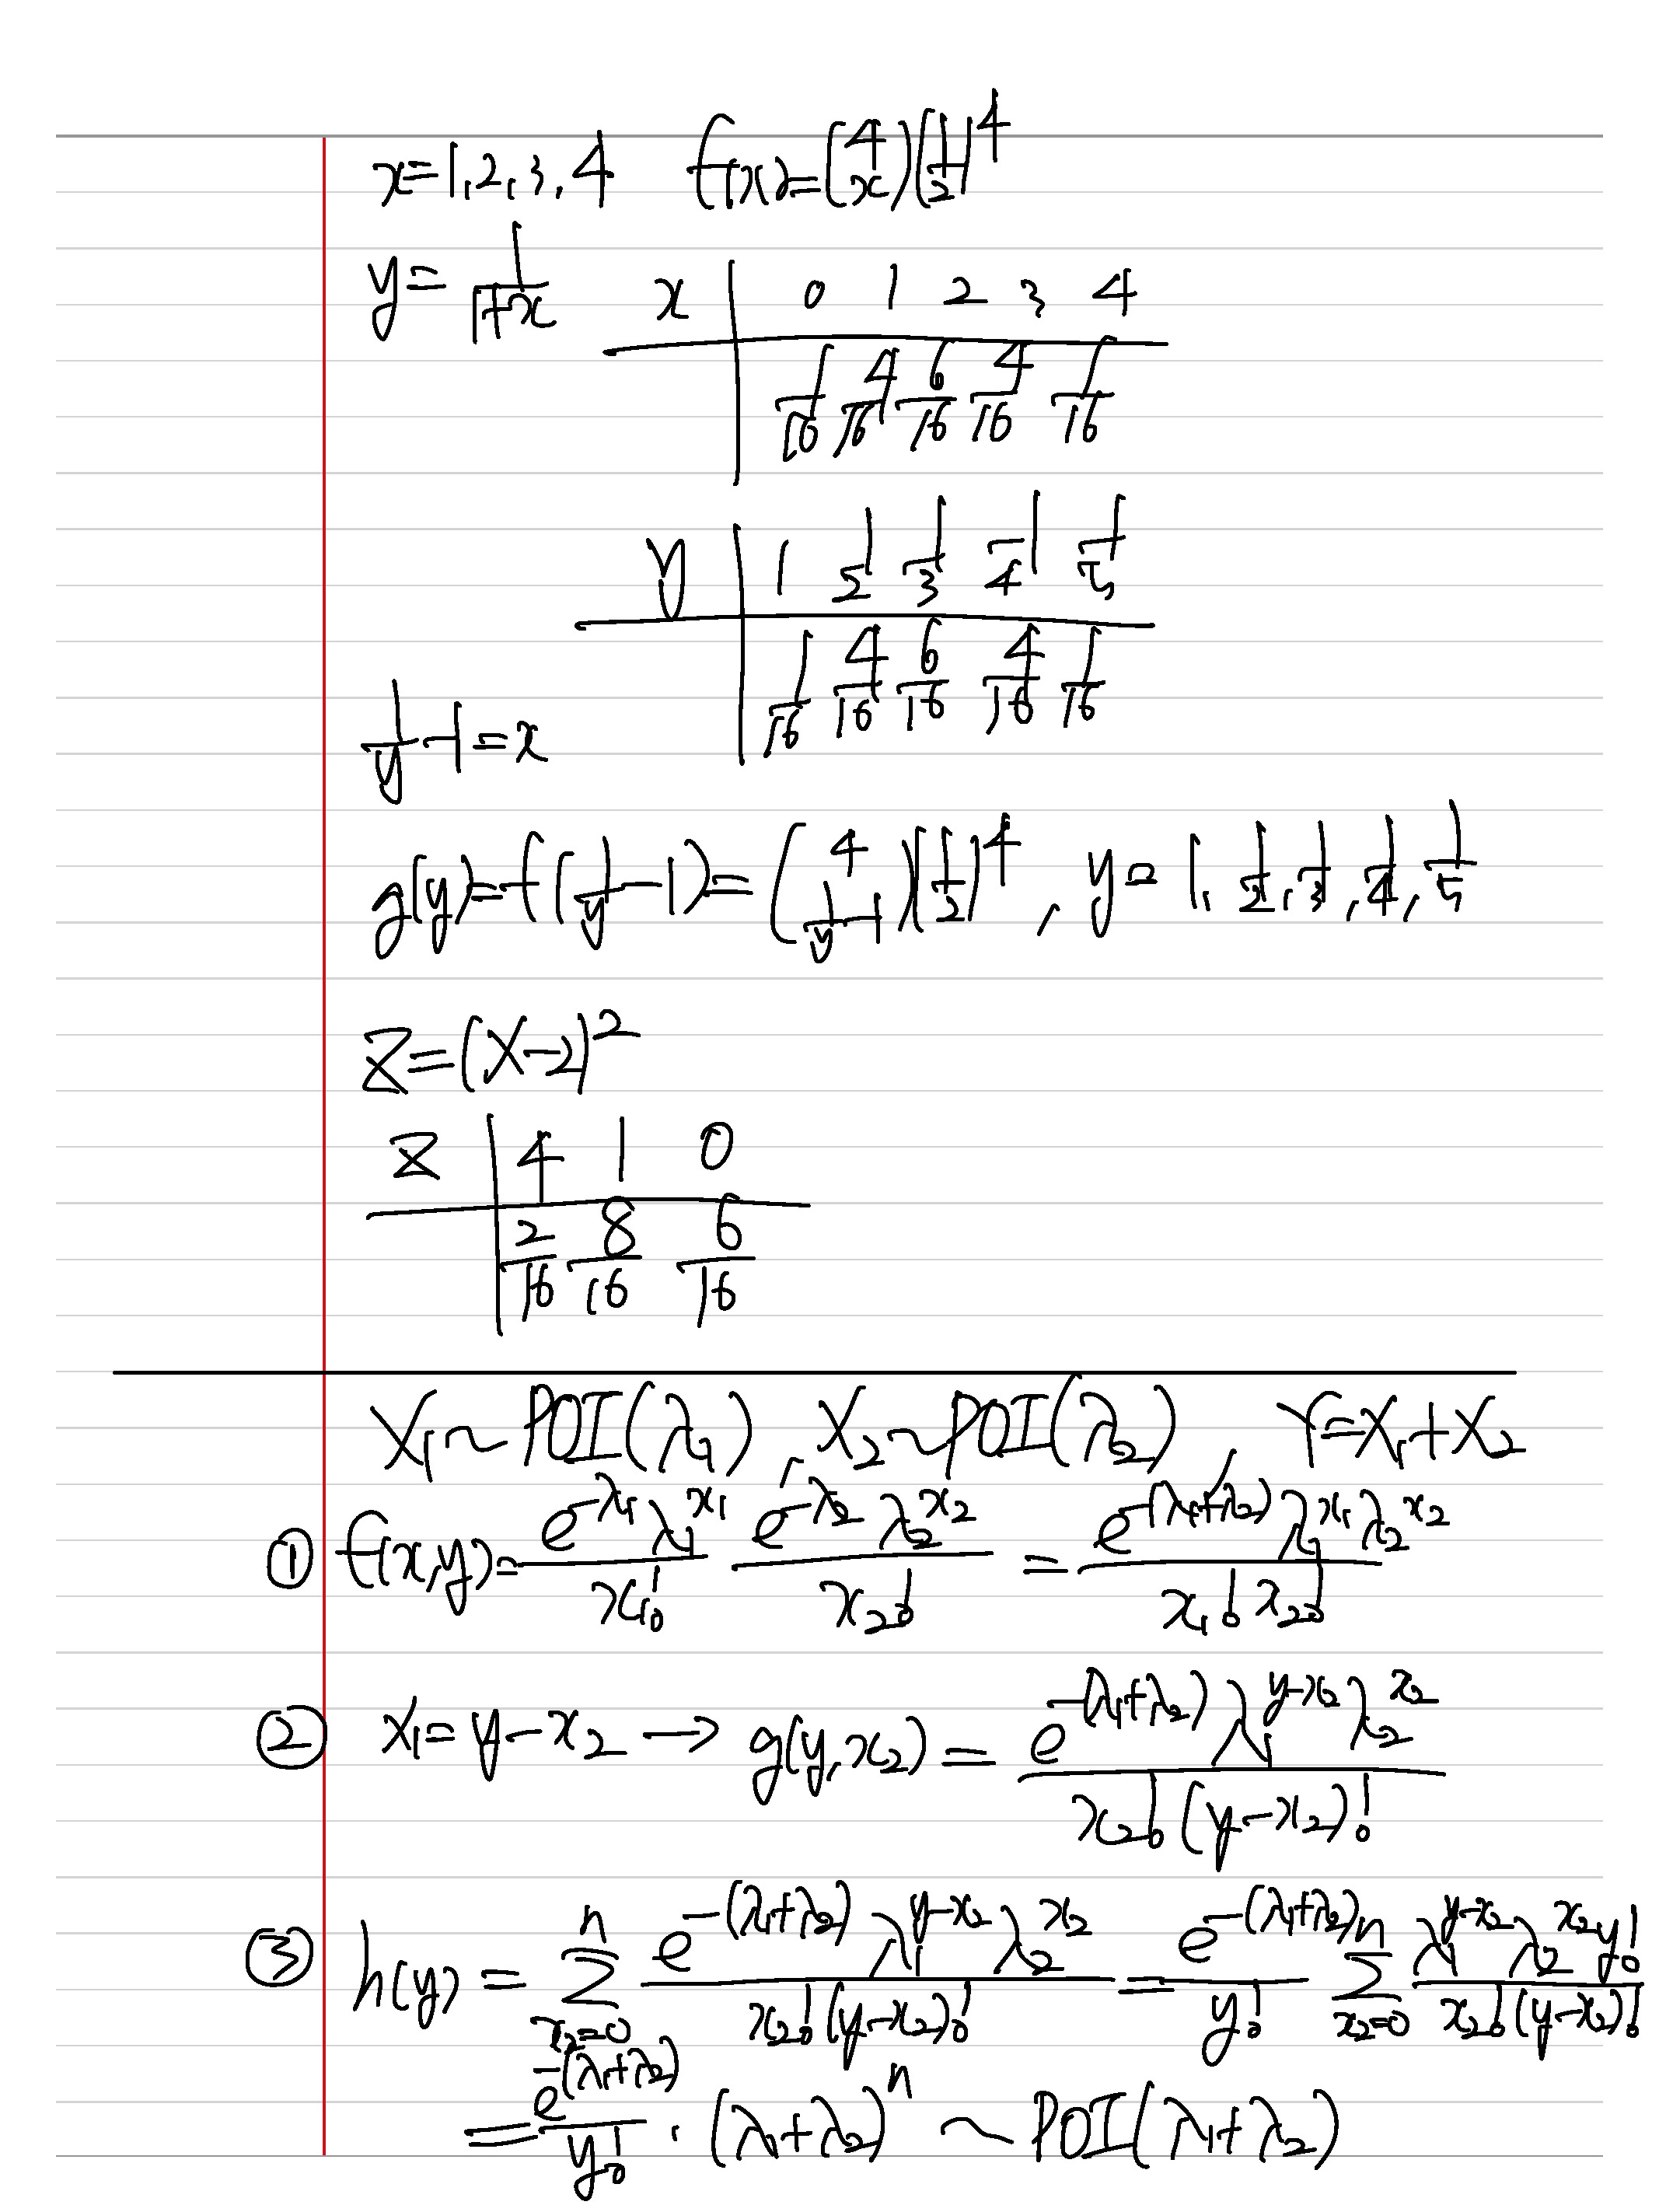 x=1,2,3,4 f(x)=(4 x)(1/2)^4
y=1/(1+x)
x | 0 1 2 3 4
1/16 4/16 6/16 4/16 1/16
y | 1 1/2 1/3 1/4 1/5
1/16 4/16 6/16 4/16 1/16
1/y-1=x
g(y)=f(1/y-1)=(4 1/y-1)(1/2)^4, y=1, 1/2, 1/3, 1/4, 1/5
Z=(X-2)^2
Z | 4 1 0
2/16 8/16 6/16
X₁~POI(λ₁), X₂~POI(λ₂), Y=X₁+X₂
① f(x,y)=e^-λ₁ λ₁^x₁/x₁! e^-λ₂ λ₂^x₂/x₂! = e^-(λ₁+λ₂) λ₁^x₁ λ₂^x₂/x₁! x₂!
② x₁=y-x₂ → g(y,x₂)=e^-(λ₁+λ₂) λ₁^y-x₂ λ₂^x₂/x₂!(y-x₂)!
③ h(y)=Σ_{x₂=0}^n e^-(λ₁+λ₂) λ₁^y-x₂ λ₂^x₂/x₂!(y-x₂)! = e^-(λ₁+λ₂)/y! Σ_{x₂=0}^n λ₁^y-x₂ λ₂^x₂ y!/x₂!(y-x₂)!
=e^-(λ₁+λ₂)/y! · (λ₁+λ₂)^n ~ POI(λ₁+λ₂)